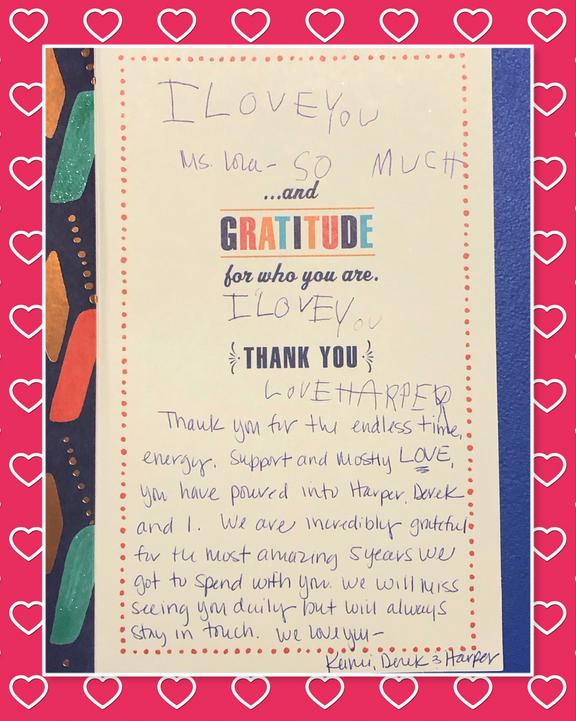 I LOVE YOU
Ms. Lora - SO MUCH
...and
GRATITUDE
for who you are.
I LOVE YOU
THANK YOU
LOVE HARPER
Thank you for the endless time,
energy, support and mostly LOVE,
you have poured into Harper, Derek
and I. We are incredibly grateful
for the most amazing 5 years we
got to spend with you. We will miss
seeing you daily but will always
stay in touch. We love you -
Derek & Harper